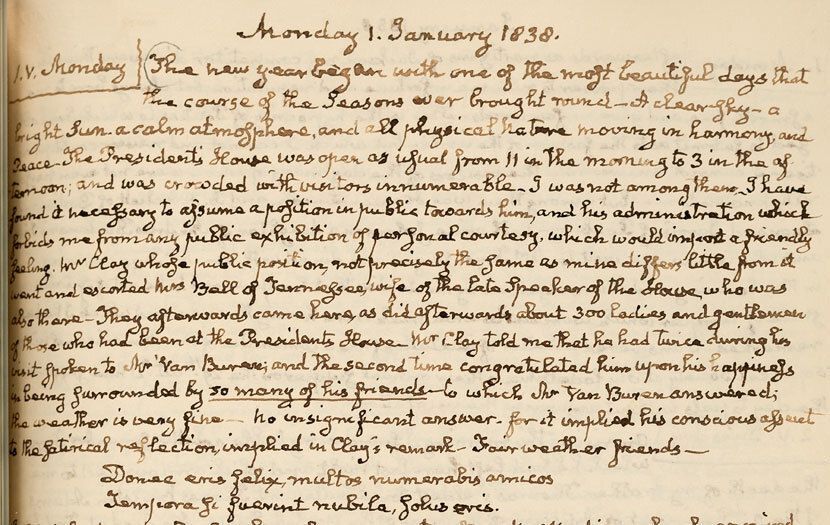 Monday 1. January 1838.
I.V. Monday } The new year began with one of the most beautiful days that
the course of the Seasons ever brought round — A clear sky — a
bright Sun. a calm atmosphere, and all physical Nature moving in harmony, and
Peace — The President's House was open as usual from 11 in the morning to 3 in the af
ternoon; and was crowded with visitors innumerable — I was not among them — I have
found it necessary to assume a position in public towards him, and his administration which
forbids me from any public exhibition of personal courtesy, which would import a friendly
feeling. Mr Clay whose public position, not precisely the same as mine differs little from it
went and escorted Mrs Bell of Tennessee, wife of the late Speaker of the House who was
also there — They afterwards came here, as did afterwards about 300 ladies and gentlemen
of those who had been at the Presidents House — Mr Clay told me that he had twice during his
visit spoken to Mr Van Buren; and the second time congratulated him upon his happiness
in being surrounded by so many of his friends — to which Mr Van Buren answered;
the weather is very fine — no insignificant answer. for it implied his conscious assent
to the satirical reflection, implied in Clay's remark — Fair weather friends —
Donec eris felix, multos numerabis amicos
Tempora si fuerint nubila, solus eris.